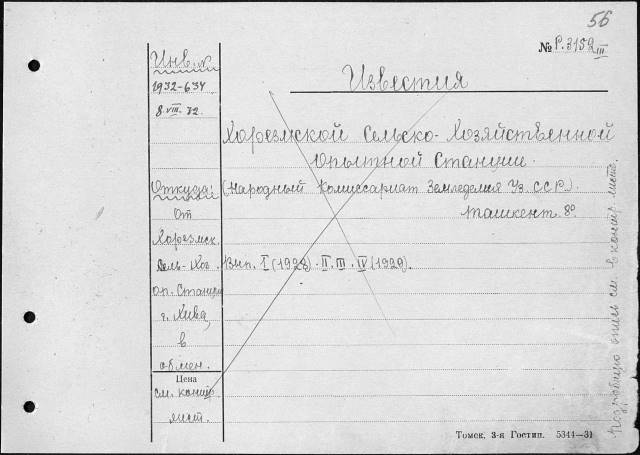 56
№ Р.3159 III
Инв. №
1932-634
8.VIII.32.
Известия
Хорезмской Сельско-Хозяйственной
Опытной Станции.
(Народный Комиссариат Земледелия Уз. ССР.)
Ташкент. 8°.
Откуда:
От
Хорезмск.
Сель-Хоз.
Оп. Станции
г. Хива,
в
обмен.
Вып. I (1928). II. III. IV (1929).
Цена
см. контр.
лист.
Подробную опись см. в контр. листе.
Томск, 3-я Гостип. 5344—31